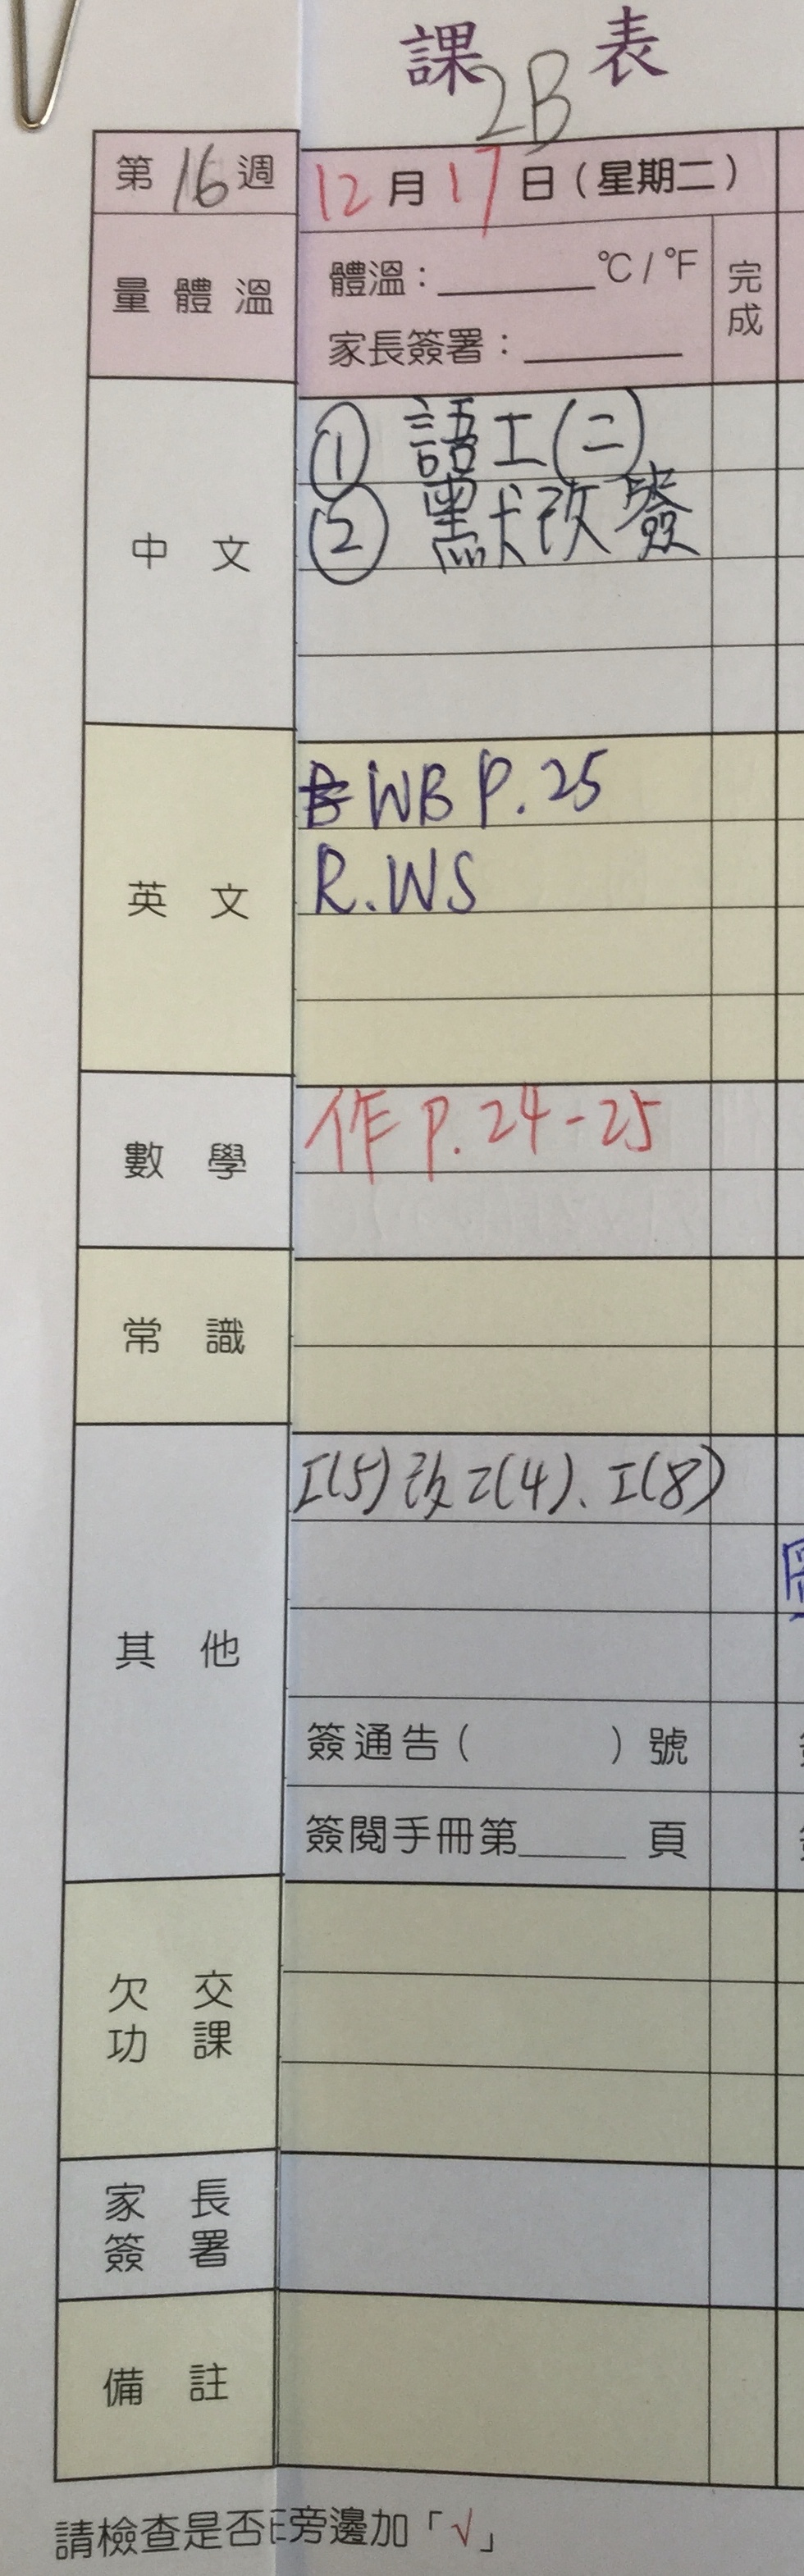 課表
2B
第16週
12月17日(星期二)
量體溫
體溫:______°C/°F
完成
家長簽署:______
中文
① 語工(二)
② 默改簽
英文
WB P.25
R.WS
數學
作 P.24-25
常識
其他
I(5)改I(4)、I(8)
簽通告( )號
簽閱手冊第____頁
欠交功課
家長簽署
備註
請檢查是否
旁邊加「√」